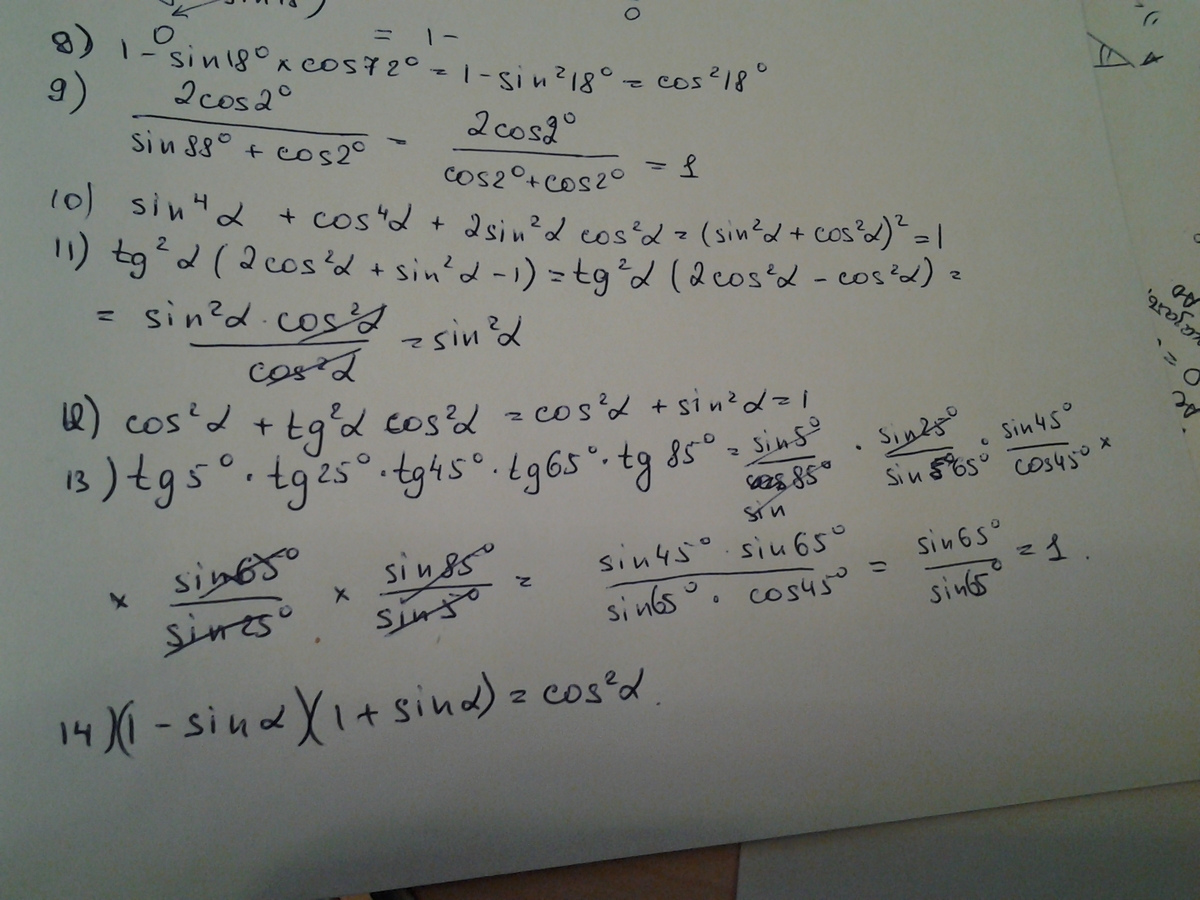 0
= 1 -
8) 1 - sin18° × cos72° = 1 - sin²18° = cos²18°
9) 2cos2° / sin88° + cos2° - 2cos2° / cos2° + cos2° = 1
10) sin⁴α + cos⁴α + 2sin²α cos²α = (sin²α + cos²α)² = 1
11) tg²α (2cos²α + sin²α - 1) = tg²α (2cos²α - cos²α) =
= sin²α · cos²α / cos²α = sin²α
12) cos²α + tg²α cos²α = cos²α + sin²α = 1
13) tg5° · tg25° · tg45° · tg65° · tg85° = sin5° / sin85° · sin25° / sin65° · sin45° / cos45° ×
× sin65° / sin25° × sin85° / sin5° = sin45° · sin65° / sin65° · cos45° = sin65° / sin65° = 1.
14) (1 - sinα)(1 + sinα) = cos²α.